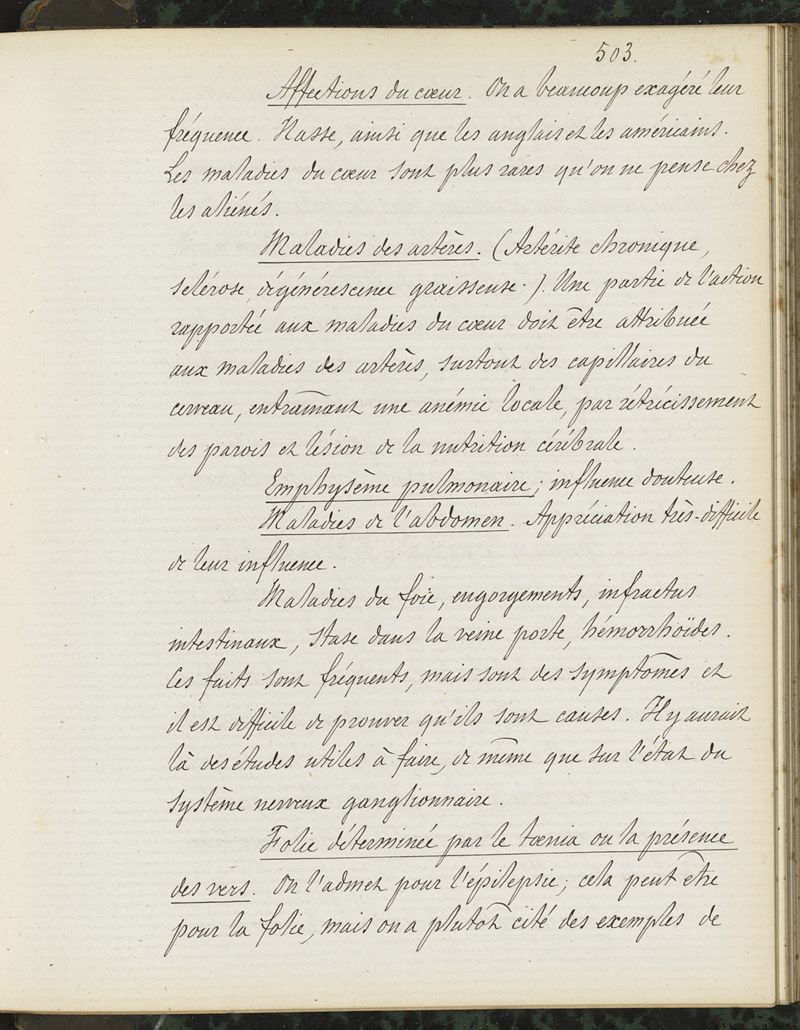 503.
Affections du cœur. On a beaucoup exagéré leur
fréquence. Nasse, ainsi que les anglais et les américains.
Les maladies du cœur sont plus rares qu'on ne pense chez
les aliénés.
Maladies des artères. (Artérite chronique,
sclérose, dégénérescence graisseuse.). Une partie de l'action
rapportée aux maladies du cœur doit être attribuée
aux maladies des artères, surtout des capillaires du
cerveau, entraînant une anémie locale, par rétrécissement
des parois et lésion de la nutrition cérébrale.
Emphysème pulmonaire; influence douteuse.
Maladies de l'abdomen. Appréciation très-difficile
de leur influence.
Maladies du foie, engorgements, infractus
intestinaux, stase dans la veine porte, hémorrhoïdes.
Ces faits sont fréquents, mais sont des symptômes et
il est difficile de prouver qu'ils sont causes. Il y aurait
là des études utiles à faire, de même que sur l'état du
système nerveux ganglionnaire.
Folie déterminée par le tœnia ou la présence
des vers. On l'admet pour l'épilepsie; cela peut être
pour la folie, mais on a plutôt cité des exemples de